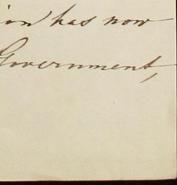 ion has now
Government,